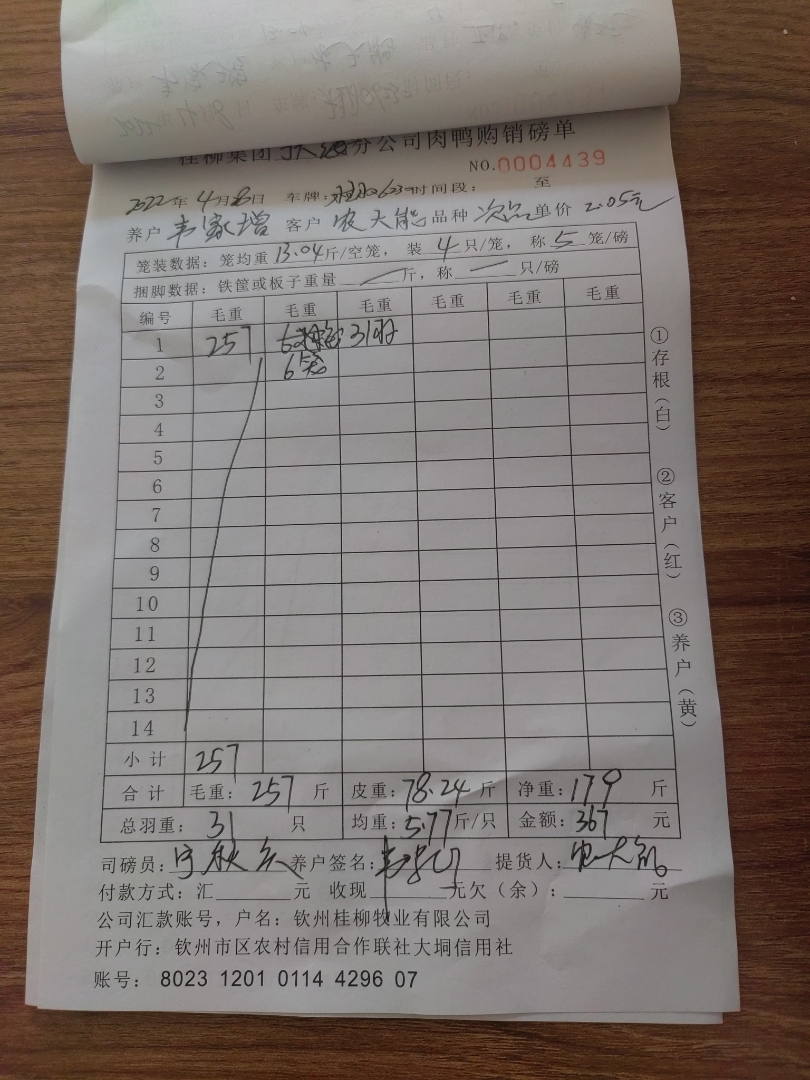 桂柳集团 分公司肉鸭购销磅单
NO.0004439
2022年4月8日 车牌: 时间段: 至
养户 韦家增 客户 农天能 品种 次品 单价 2.05元
笼装数据:笼均重 13.04 斤/空笼, 装 4 只/笼, 称 5 笼/磅
捆脚数据:铁筐或板子重量 一 斤,称 一 只/磅
编号 毛重 毛重 毛重 毛重 毛重 毛重
1 257 31羽
2 6笼
3
4
5
6
7
8
9
10
11
12
13
14
小计 257
合计 毛重: 257 斤 皮重: 78.24 斤 净重: 179 斤
总羽重: 31 只 均重: 5.77 斤/只 金额: 367 元
司磅员: 养户签名: 提货人: 农天能
付款方式:汇 元 收现 元欠(余): 元
公司汇款账号,户名:钦州桂柳牧业有限公司
开户行:钦州市区农村信用合作联社大垌信用社
账号: 8023 1201 0114 4296 07
①存根(白)
②客户(红)
③养户(黄)